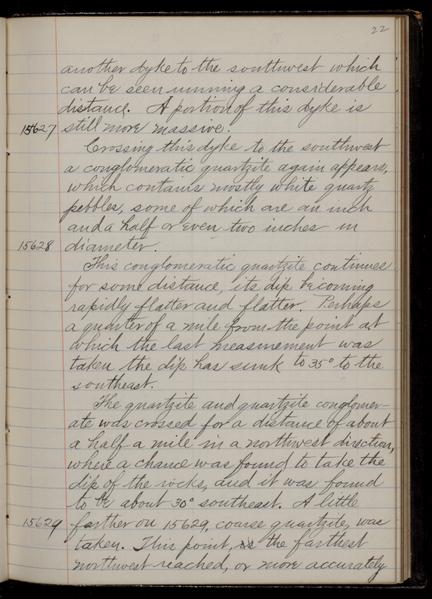 22
another dyke to the southwest which
can be seen running a considerable
distance. A portion of this dyke is
15627 still more massive.
Crossing this dyke to the southwest
a conglomeratic quartzite again appears,
which contains mostly white quartz
pebbles, some of which are an inch
and a half or even two inches in
15628 diameter.
This conglomeratic quartzite continues
for some distance, its dip becoming
rapidly flatter and flatter. Perhaps
a quarter of a mile from the point at
which the last measurement was
taken the dip has sunk to 35° to the
southeast.
The quartzite and quartzite conglomer-
ate was crossed for a distance of about
a half a mile in a northwest direction,
where a chance was found to take the
dip of the rocks, and it was found
to be about 30° southeast. A little
15629 farther on 15629, coarse quartzite, was
taken. This point, is the farthest
northwest reached, or more accurately